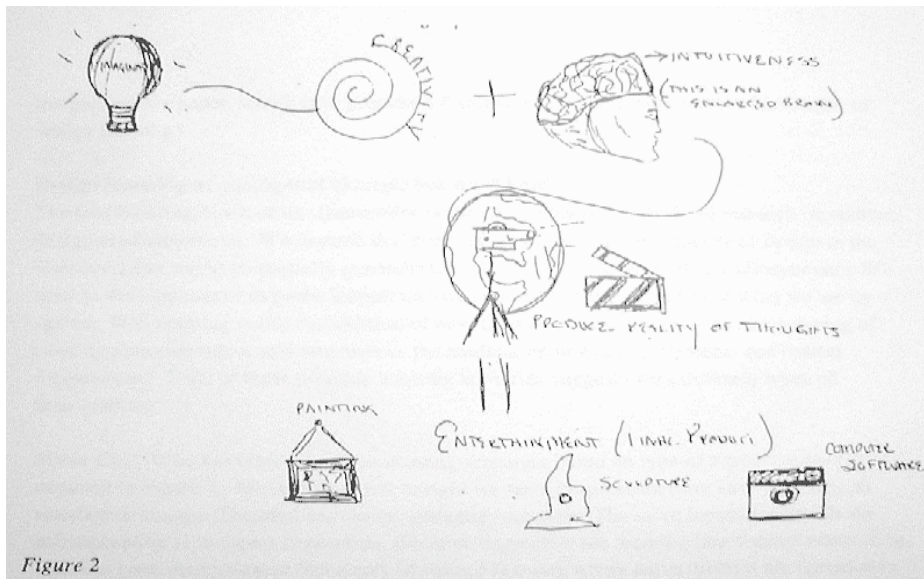 CREATIVITY
→ INTUITIVENESS
(THIS IS AN
ENLARGED BRAIN)
PRODUCE REALITY OF THOUGHTS
PAINTING
ENTERTAINMENT (FINAL PRODUCT)
SCULPTURE
COMPUTER
SOFTWARE
Figure 2